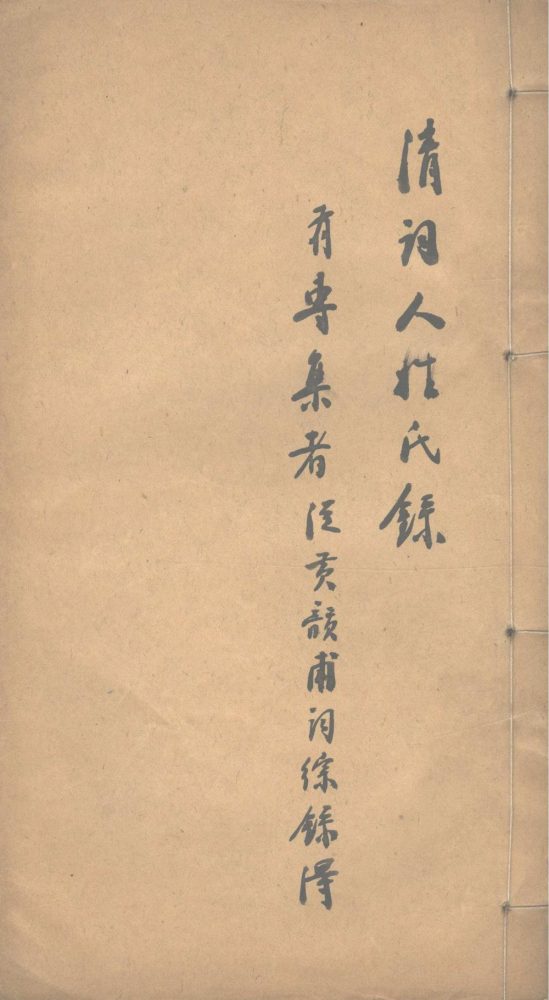 清詞人姓氏錄
有専集者從黃韻甫詞綜錄得